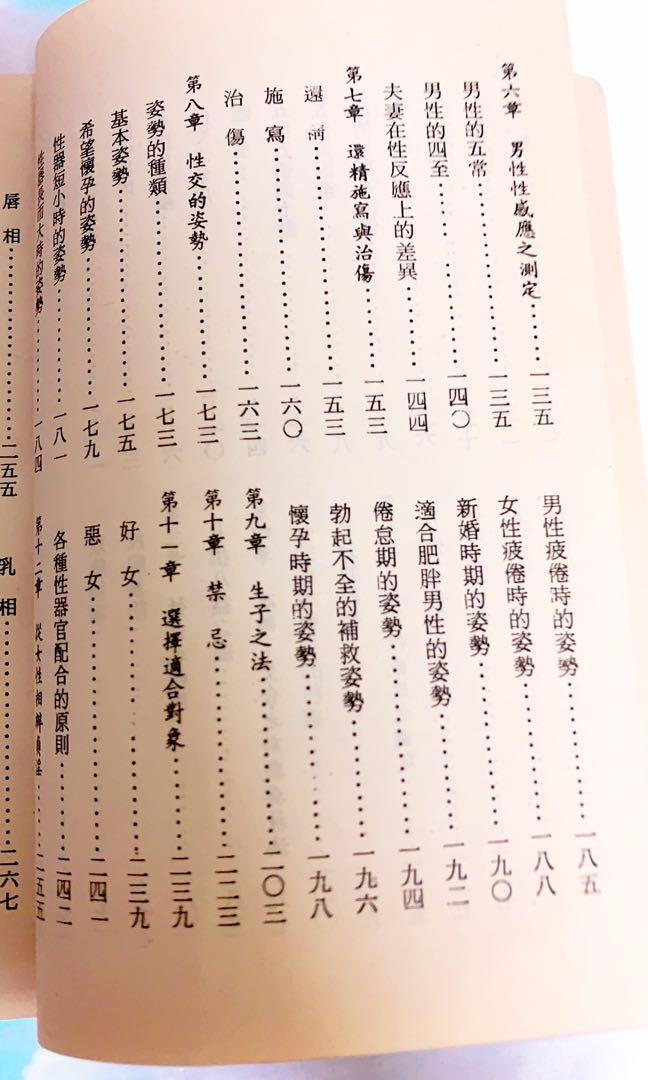 第六章　男性性感應之測定……一三五
男性的五常……一三五
男性的四至……一四〇
夫妻在性反應上的差異……一四四
第七章　還精施寫與治傷……一五三
還精……一五三
施寫……一六〇
治傷……一六三
第八章　性交的姿勢……一七三
姿勢的種類……一七三
基本姿勢……一七五
希望懷孕的姿勢……一七九
性器短小時的姿勢……一八一
時的姿勢……一八四
男性疲倦時的姿勢……一八五
女性疲倦時的姿勢……一八八
新婚時期的姿勢……一九〇
適合肥胖男性的姿勢……一九二
倦怠期的姿勢……一九四
勃起不全的補救姿勢……一九六
懷孕時期的姿勢……一九八
第九章　生子之法……二〇三
第十章　禁忌……二二三
第十一章　選擇適合對象……二三九
好女……二三九
惡女……二四一
各種性器官配合的原則……二四二
第十二章　從女性相辨貞淫……二五五
唇相……二五五
乳相……二六七